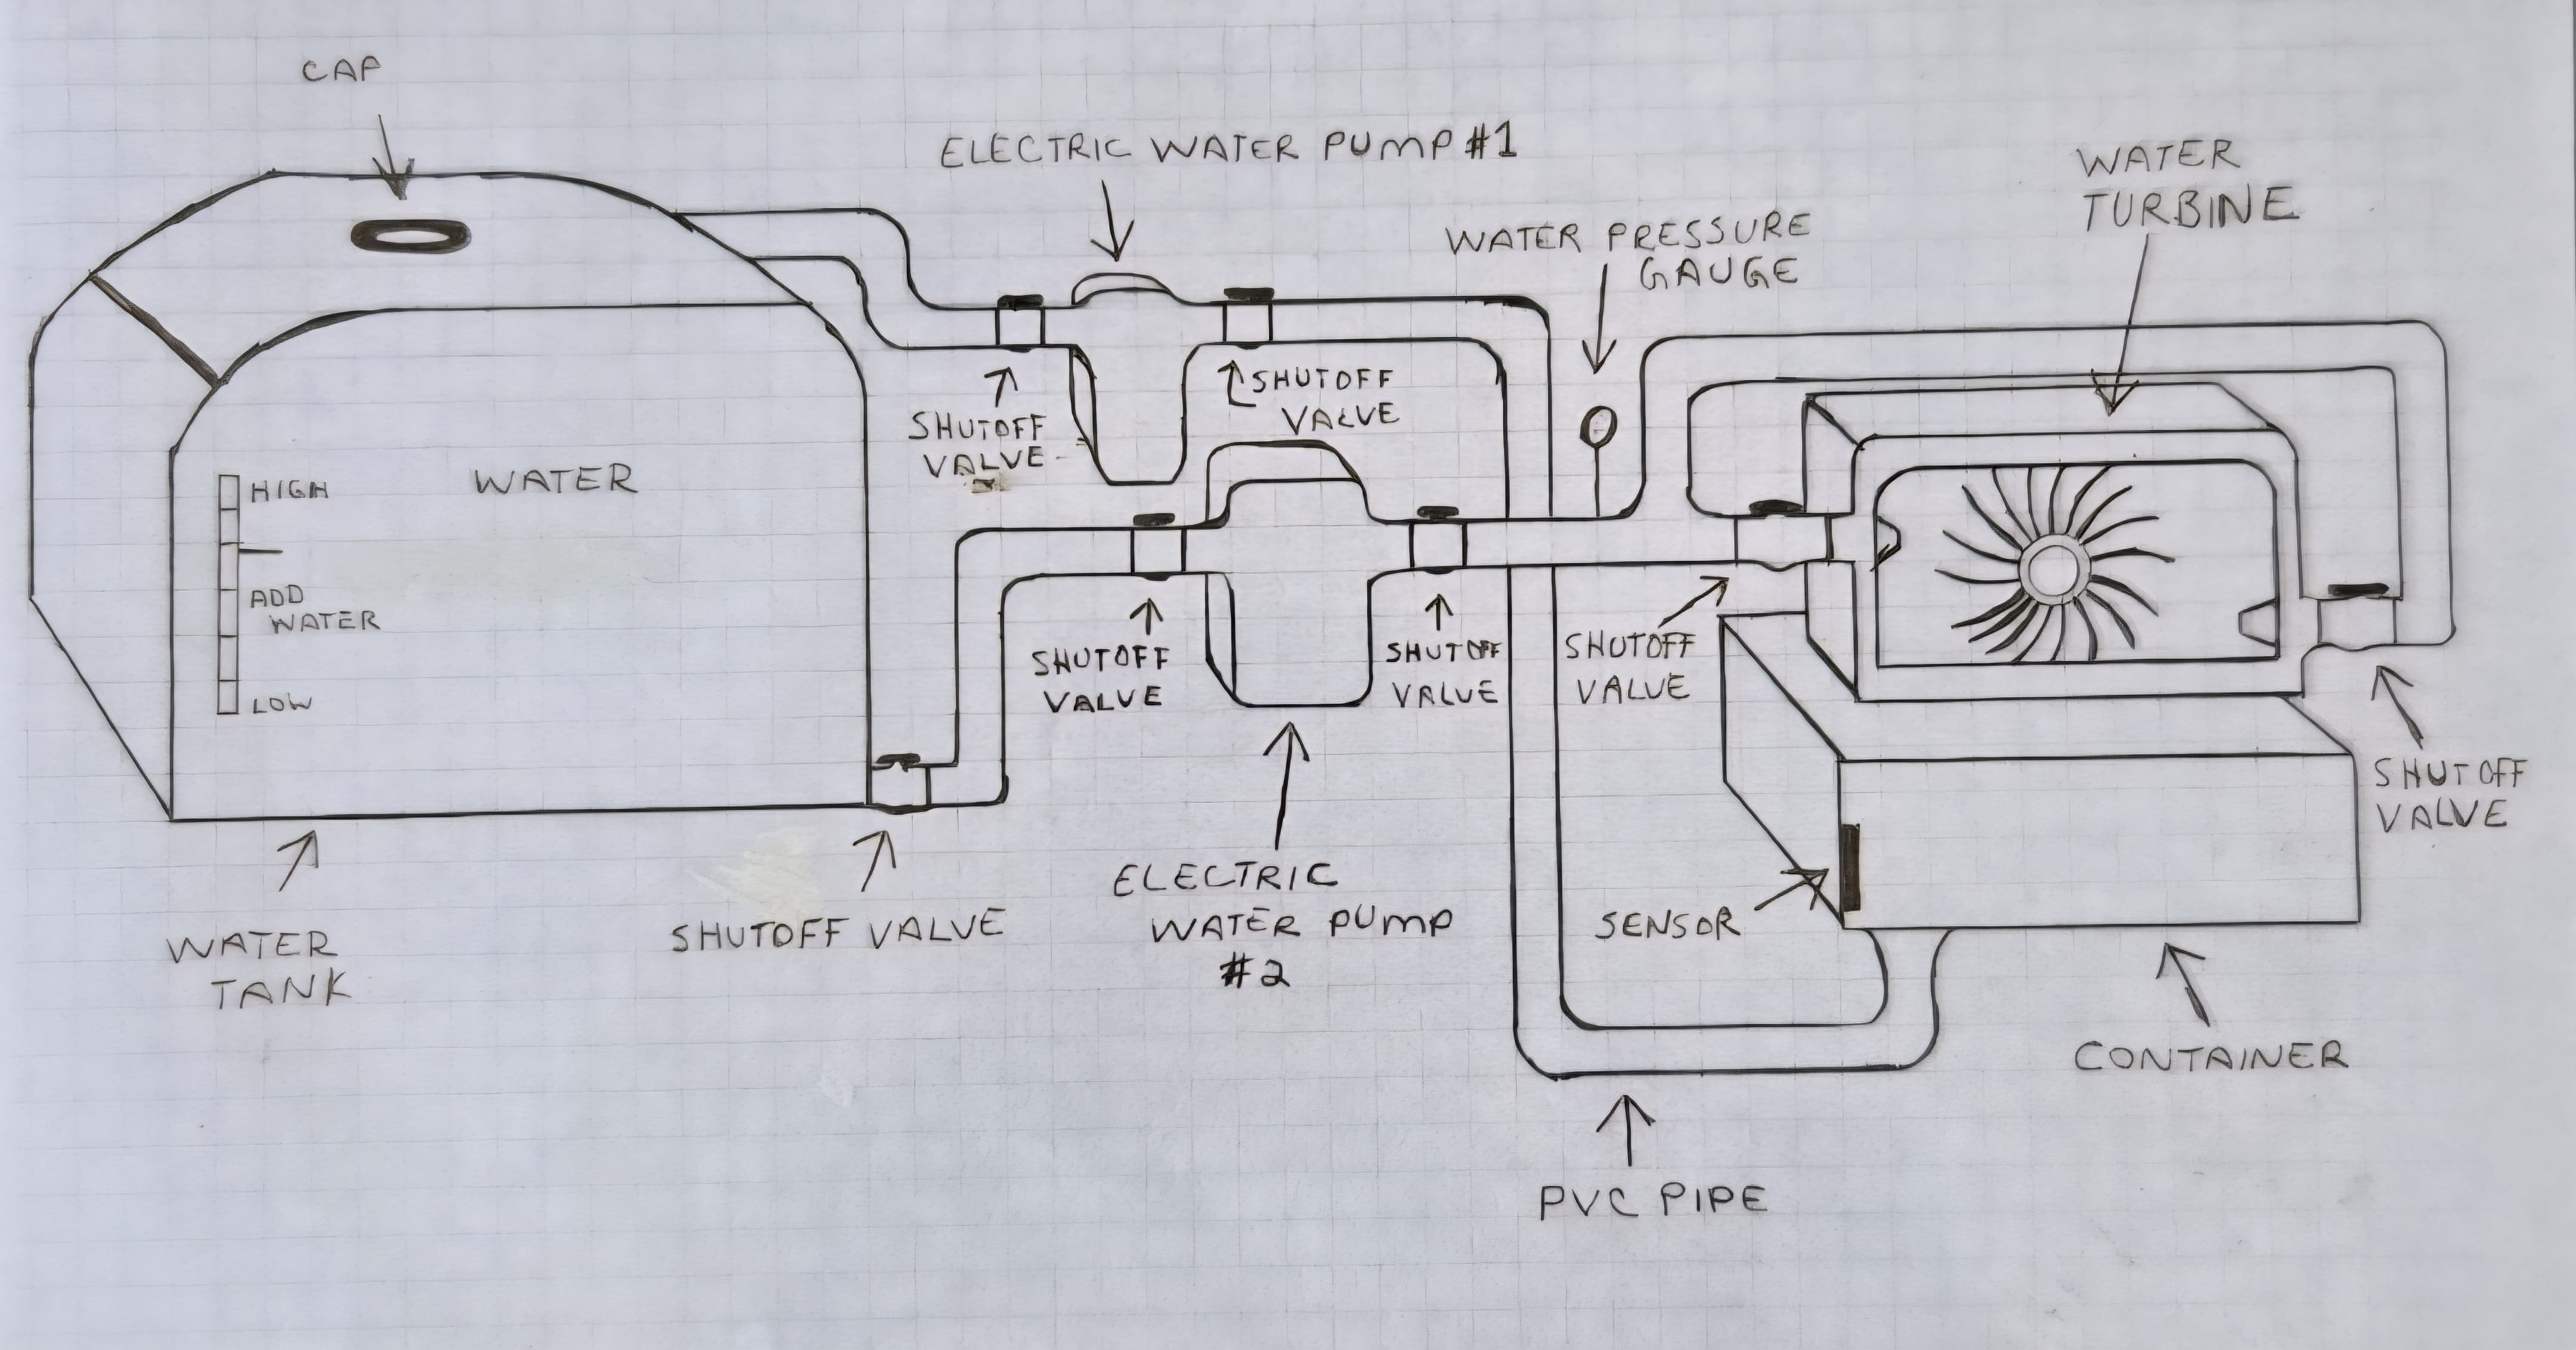 CAP
ELECTRIC WATER PUMP #1
WATER
TURBINE
WATER PRESSURE
GAUGE
SHUTOFF
VALVE
SHUTOFF
VALVE
HIGH
WATER
ADD
WATER
LOW
SHUTOFF
VALVE
SHUTOFF
VALVE
SHUTOFF
VALVE
SHUTOFF
VALVE
ELECTRIC
WATER PUMP
#2
SENSOR
WATER
TANK
SHUTOFF VALVE
CONTAINER
PVC PIPE